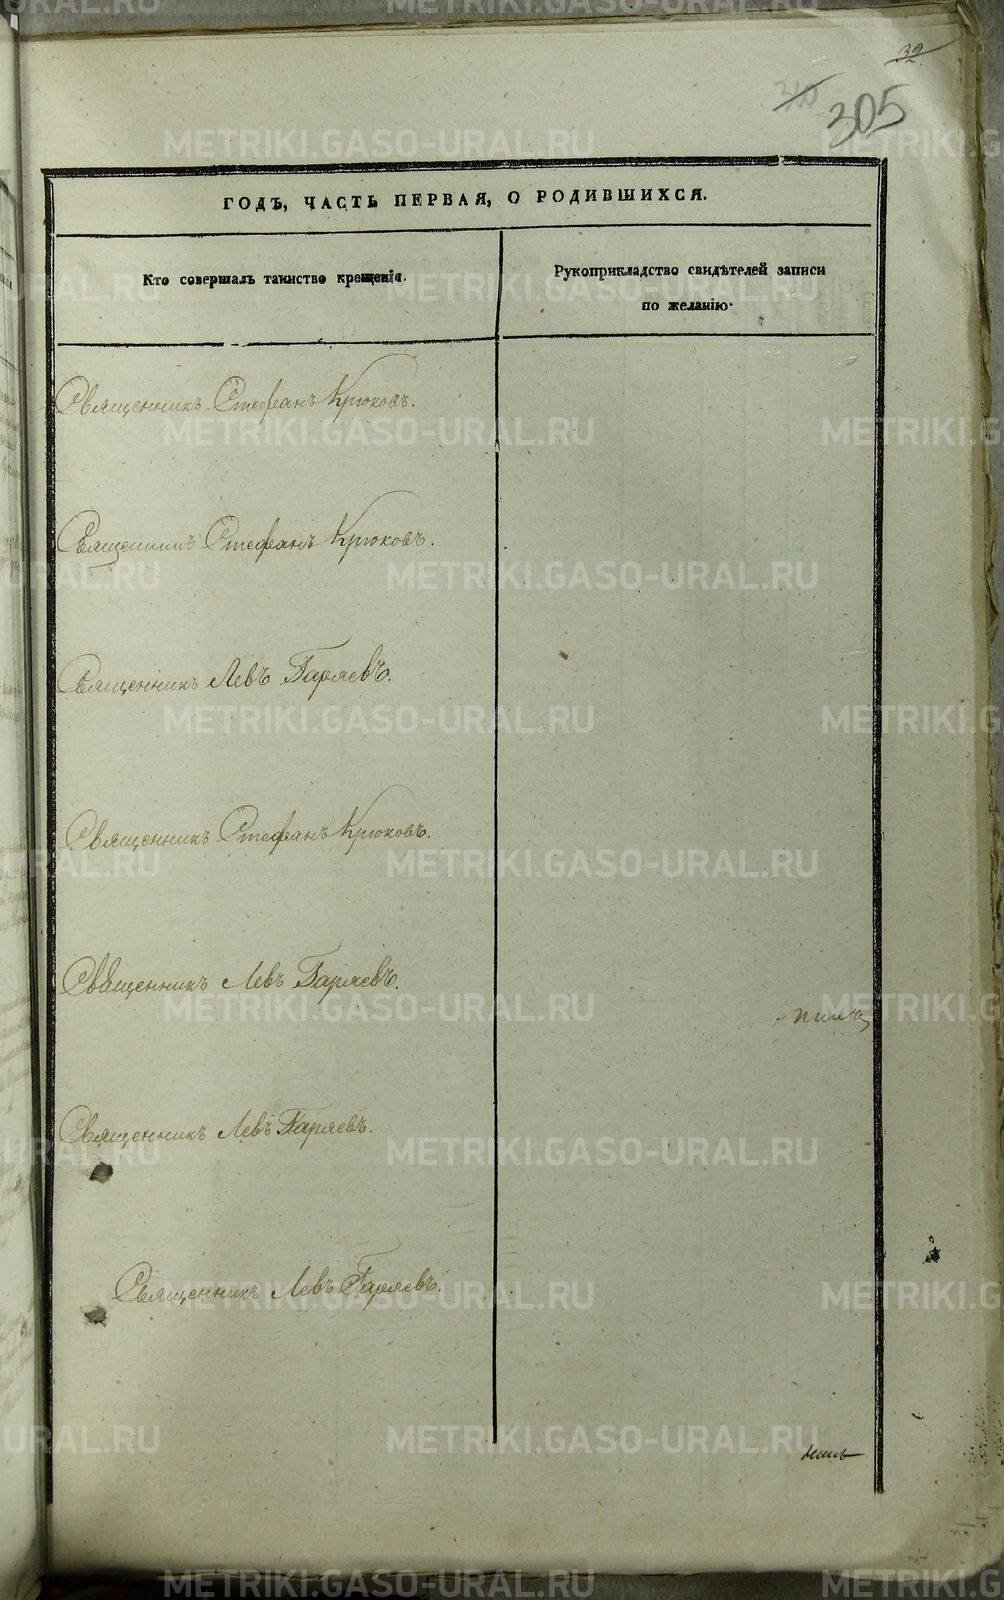 32
305
ГОДЪ, ЧАСТЬ ПЕРВАЯ, О РОДИВШИХСЯ.
Кто совершалъ таинство крещенія.
Рукоприкладство свидѣтелей записи
по желанію.
Священникъ Стефанъ Крюковъ.
Священникъ Стефанъ Крюковъ.
Священникъ Левъ Гаряевъ.
Священникъ Стефанъ Крюковъ.
Священникъ Левъ Гаряевъ.
Священникъ Левъ Гаряевъ.
Священникъ Левъ Гаряевъ.
METRIKI.GASO-URAL.RU